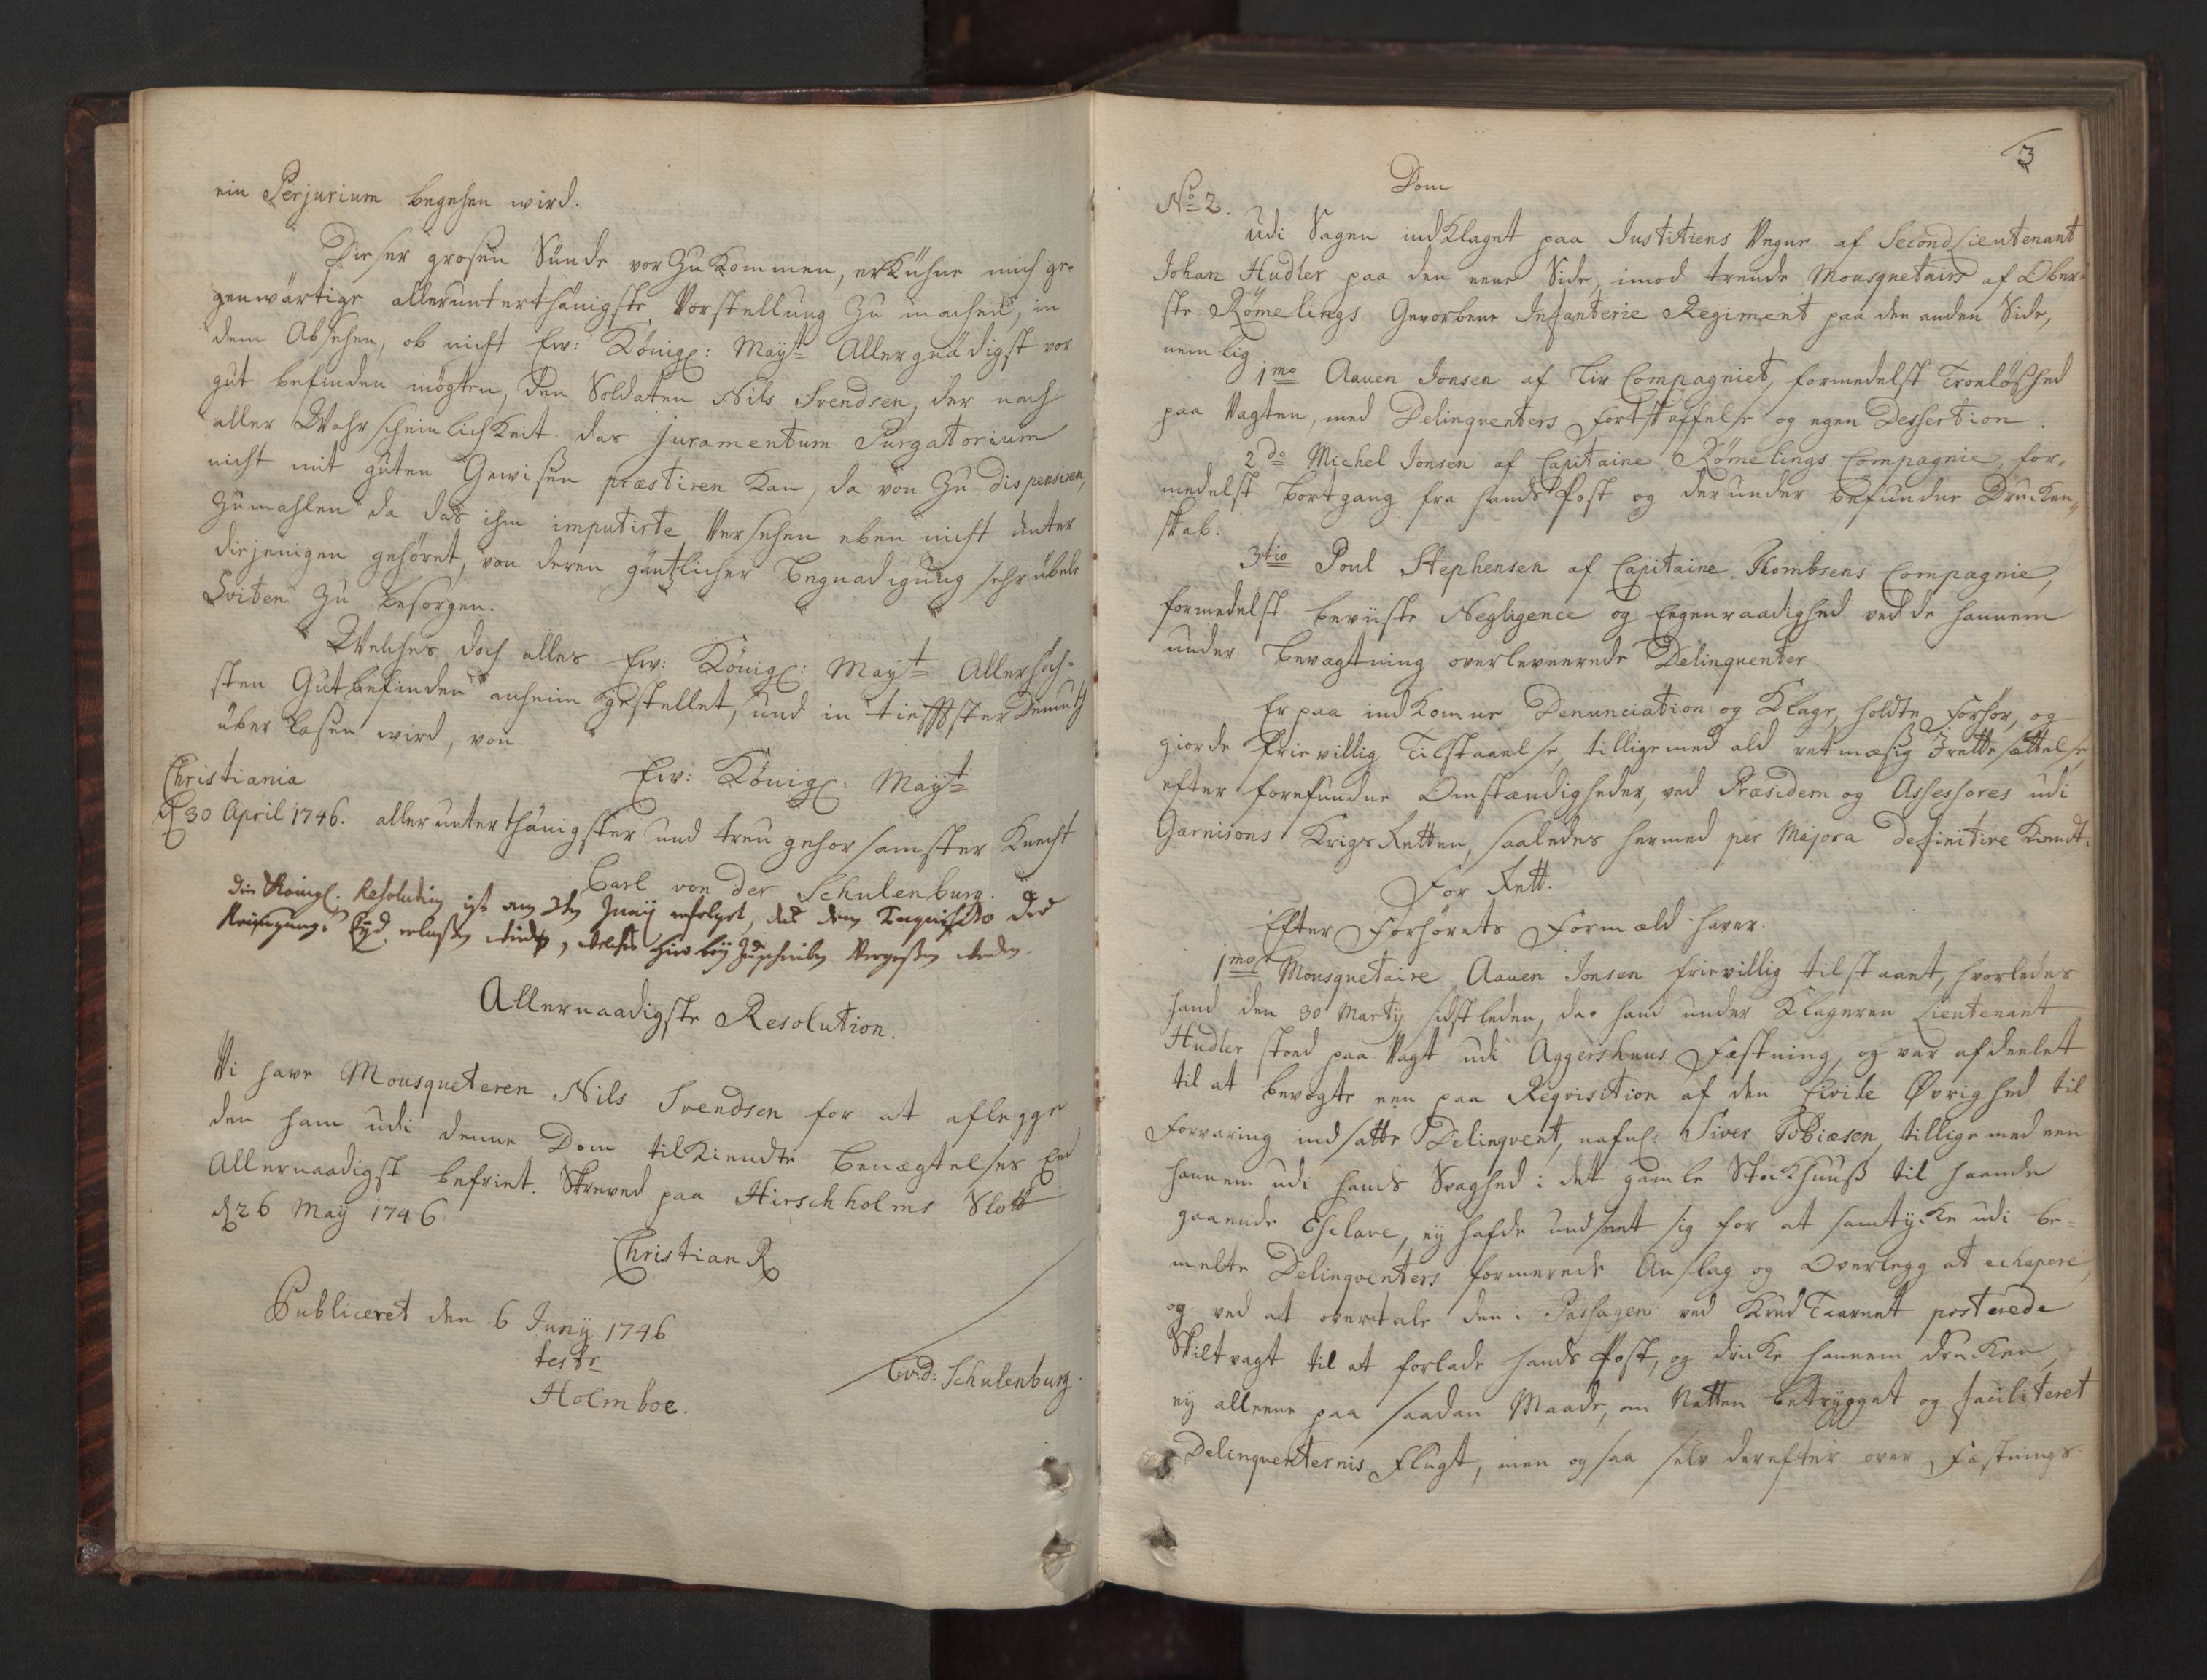 ein Perjurium begehen wird.
Dieser grosen Sünde vor Zu Kommen, erKühne mich ge-
genwärtige allerunterthänigste Vorstellung Zu machen, in
dem Absehen, ob nicht Ew: Königl: Mayt Allergnädigst vor
gut befinden mögten, den Soldaten Nils Svendsen, der nach
aller WahrscheinlichKeit das Juramentum Purgatorium
nicht mit guten Gewißen præstiren Kan, da von Zu dispensiren,
Zumahlen da das ihm imputirte Versehen eben nicht unter
diejenigen gehöret, von deren gäntzlicher Begnadigung sehr übele
Sviten Zu besorgen.
Welches doch alles Ew: Königl: Mayt Allerhöch-
sten Gutbefinden anheim gestellet, und in tieffster Demuth
überlaßen wird, von
Christiania
d 30 April 1746.
Ew: Königl: Mayt
allerunterthänigster und treu gehorsamster Knecht
Carl von der Schulenburg.
Die Königl. Resolution ist am 3ten Junij erfolget, daß dem Inquisito der
Reinigungs Eyd erlaßen, welches hierbey Zuschreiben Vergeßen worden.
Allernaadigste Resolution.
Vi have Mousqueteren Nils Svendsen for at aflegge
den ham udi denne Dom tilKiendte Benægtelses Eed
Allernaadigst befriet. Skreved paa Hirschholms Slott
d 26 Maij 1746
Christian R
Publiceret den 6 Junij 1746
teste
Holmboe.
C:v:d: Schulenburg.
3
Dom
No 2.
Udi Sagen indKlaget paa Justitiens Vegne af Second Lieutenant
Johan Hudler paa den eene Side, imod trende Mousquetairs af Ober-
ste Römelings Gevorbene Infanterie Regiment paa den anden Side,
nemlig
1mo Aaven Jonsen af Liv Compagniet, formedelst Troeløshed
paa Vagten, med Delinqventers Fortskaffelse og egen Dessertion.
2do Michel Jonsen af Capitaine Römelings Compagnie, for-
medelst Bortgang fra hands Post og derunder befundne Drucken-
skab.
3tio Poul Stephensen af Capitaine Compagnie,
formedelst beviiste Negligence og Eegenraadighed ved de hannem
under Bevagtning overleverede Delinqventer
Er paa indKomne Denunciation og Klage, holdte Forhør, og
giorde frievillig Tilstaaelse, tilligemed ald retmæsig Irettesættelse,
efter forefundne Omstændigheder, ved Præsidem og Assessores udi
Garnisons Krigs Retten, saaledes hermed per Majora definitive Kiendt.
For Rett.
Efter Forhørets Formæld haver.
1mo Mousquetaire Aaven Jonsen frievillig tilstaaet, hvorledes
hand den 30 Martij sidstleden, da hand under Klageren Lieutenant
Hudler stoed paa Vagt udi Aggershuus Fæstning, og var afdeelet
til at bevogte een paa Reqvisition af den Civile Øvrighed til
Forvaring indsatte Delinqvent, nafnl: Siver Tobiæsen, tilligemed een
hannem udi hands Svaghed i det gamle Stockhuuß til haande
gaaende Esclave, ej hafde undseet sig for at samtycke udi be-
melte Delinqventers formerede Anslag og Overlegg at echapere,
og ved at overtale den i Passagen ved Krud Taarnet posterede
Skiltvagt til at forlade hands Post, og dricke hannem drucken,
ej alleene paa saadan Maade, om Natten betrygget og faciliteret
Delinqventernis Flugt, men og saa selv derefter over Fæstnings